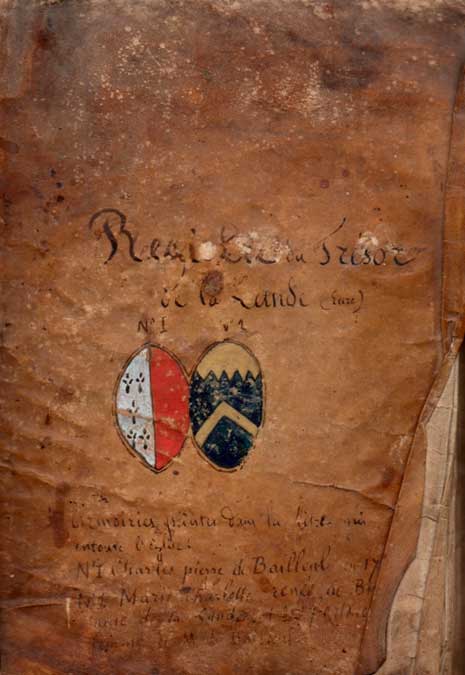 Registre du Trésor
de la Lande (Eure)
N° 1 N° 2
Armoiries peintes dans la litre qui
entoure l'église.
N° 1 Charles pierre de Bailleul en 17
N° 2 Marie Charlotte renée de
de la Lande
femme de M. de Bailleul